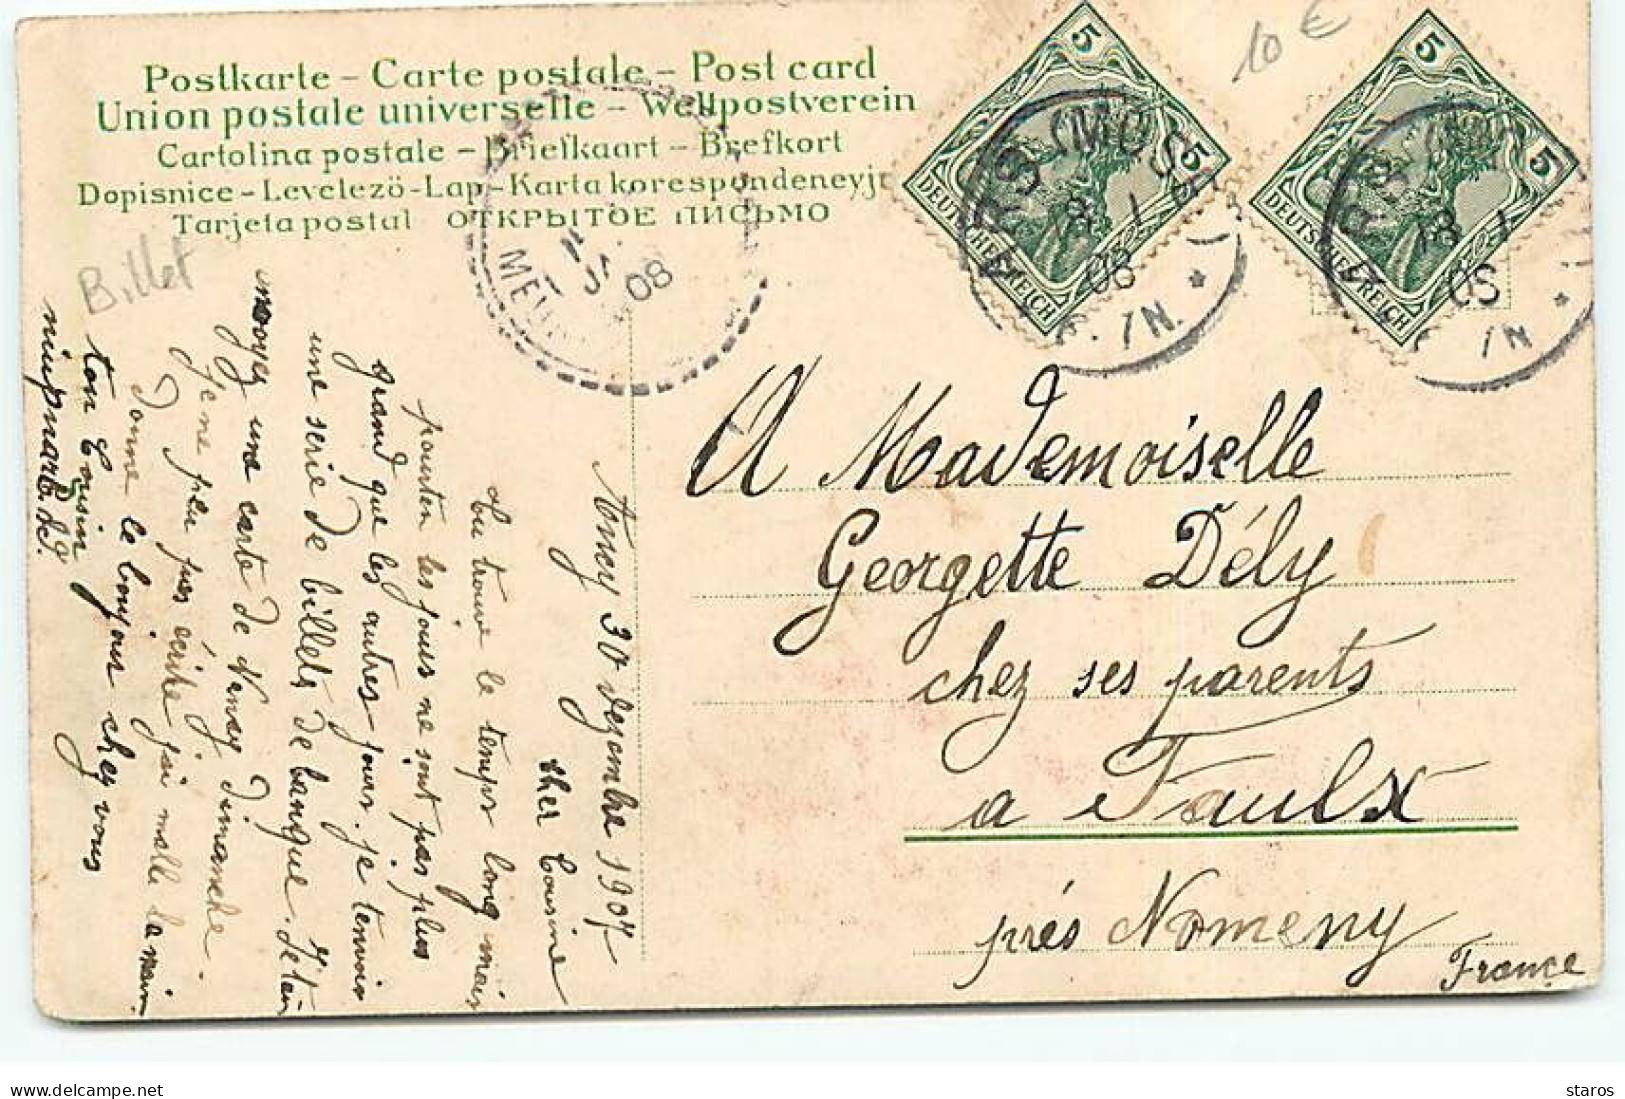 Postkarte – Carte postale – Post card
Union postale universelle – Weltpostverein
Cartolina postale – Briefkaart – Brefkort
Dopisnice – Levelező-Lap – Karta korespondencyj
Tarjeta postal ОТКРЫТОЕ ПИСЬМО
10 €
Billet
5 5
DEUTSCHES REICH
5 5
DEUTSCHES REICH
RS (MOSE
18 1
08
7N.
RS (MOS
18 1
08
7N
08
30 dezembre 1907
cher Cousine
tu trouve le temps long mais
pourten les jours ne sont pas plus
grand que les autres jours. je tenvoir
une serie de billets de banque.
moyes une carte de Nancy dimanche.
Je ne peu pas écrire j'ai malle la main
Donne le bonjour chez vous
ton Cousin
A Mademoiselle
Georgette Dély
chez ses parents
a Faulx
prés Nomeny
France
https://www.delcampe.net
staros